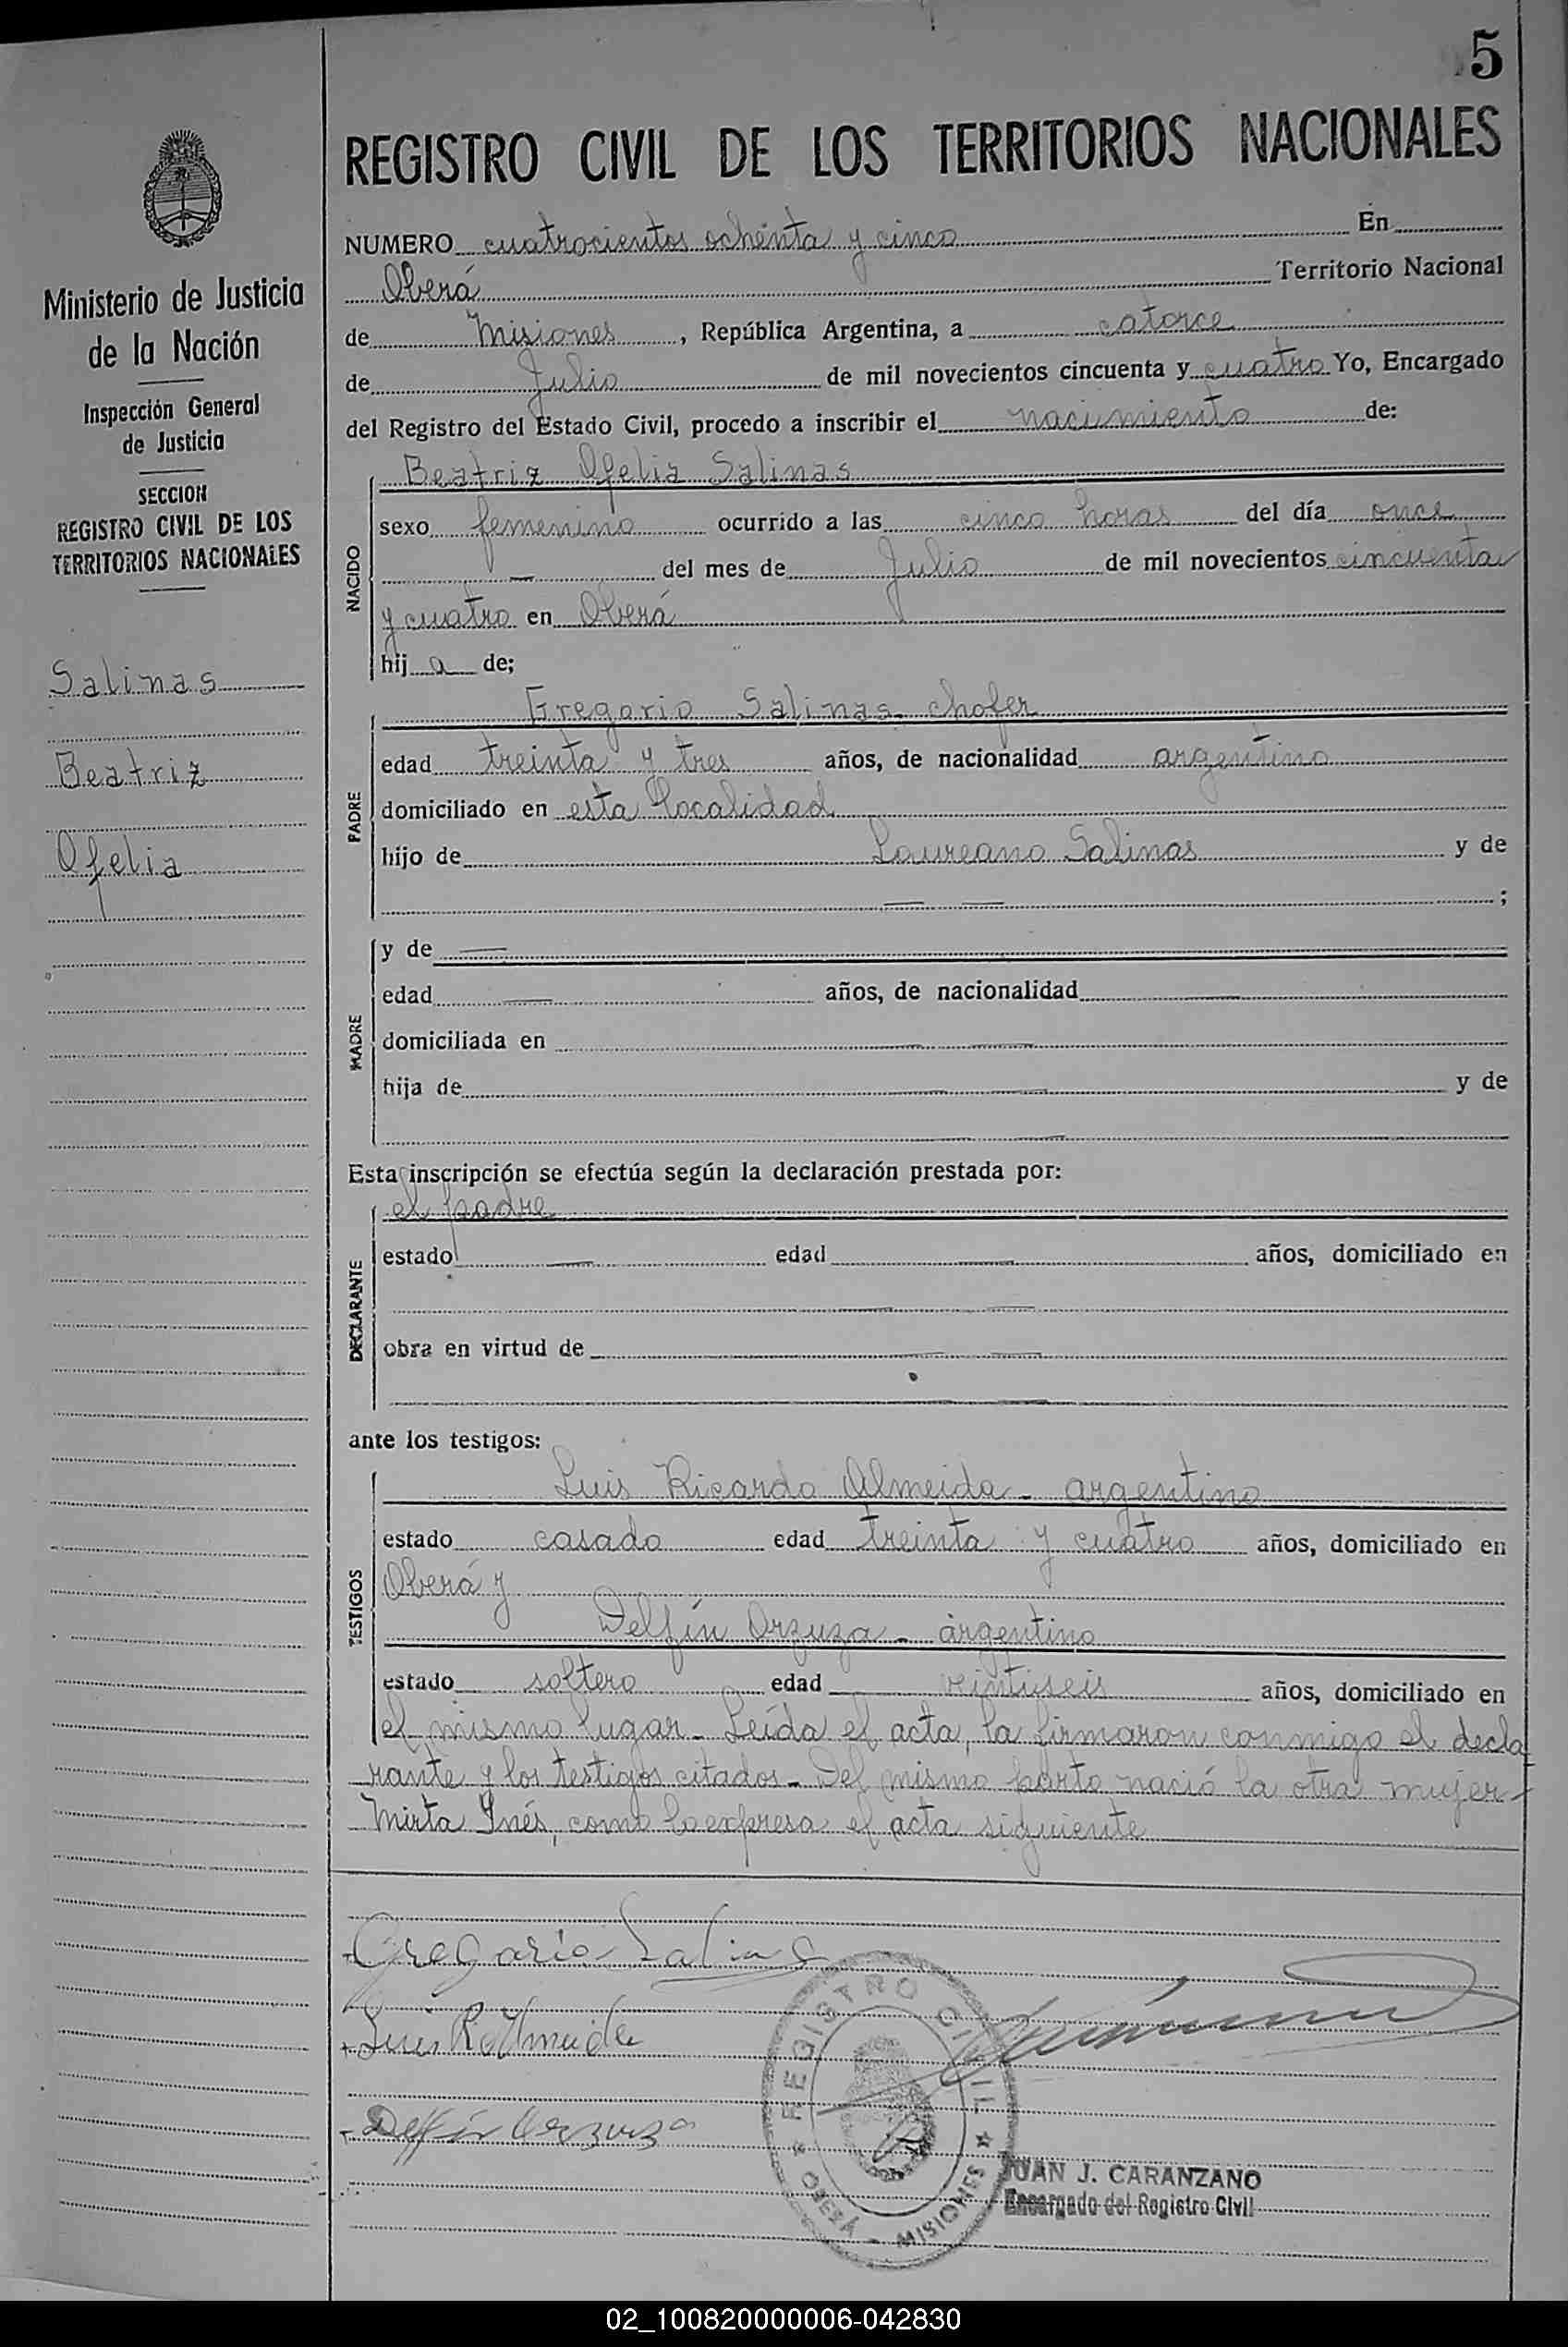 5
REGISTRO CIVIL DE LOS TERRITORIOS NACIONALES
Ministerio de Justicia
de la Nación
Inspección General
de Justicia
SECCION
REGISTRO CIVIL DE LOS
TERRITORIOS NACIONALES
Salinas
Beatriz
Ofelia
NUMERO cuatrocientos ochenta y cinco En
Oberá Territorio Nacional
de Misiones, República Argentina, a catorce
de Julio de mil novecientos cincuenta y cuatro Yo, Encargado
del Registro del Estado Civil, procedo a inscribir el nacimiento de:
NACIDO
Beatriz Ofelia Salinas
sexo femenino ocurrido a las cinco horas del día once
— del mes de Julio de mil novecientos cincuenta
y cuatro en Oberá
hij a de;
PADRE
Gregorio Salinas. chofer
edad treinta y tres años, de nacionalidad argentino
domiciliado en esta localidad
hijo de Laureano Salinas y de
— — ;
MADRE
y de —
edad — años, de nacionalidad —
domiciliada en — —
hija de — — y de
— —
Esta inscripción se efectúa según la declaración prestada por:
DECLARANTE
el padre
estado — edad — años, domiciliado en
— —
obra en virtud de — —
— —
ante los testigos:
TESTIGOS
Luis Ricardo Almeida - argentino
estado casado edad treinta y cuatro años, domiciliado en
Oberá y
Delfín Orzuza - argentino
estado soltero edad vintiseis años, domiciliado en
el mismo lugar - Leída el acta, la firmaron conmigo el decla
rante y los testigos citados - Del mismo parto nació la otra mujer -
Mirta Inés, como lo expresa el acta siguiente
Gregorio Salinas
Luis R Almeida
Delfín Orzuza
REGISTRO CIVIL
OBERÁ - MISIONES
JUAN J. CARANZANO
Encargado del Registro Civil
02_100820000006-042830